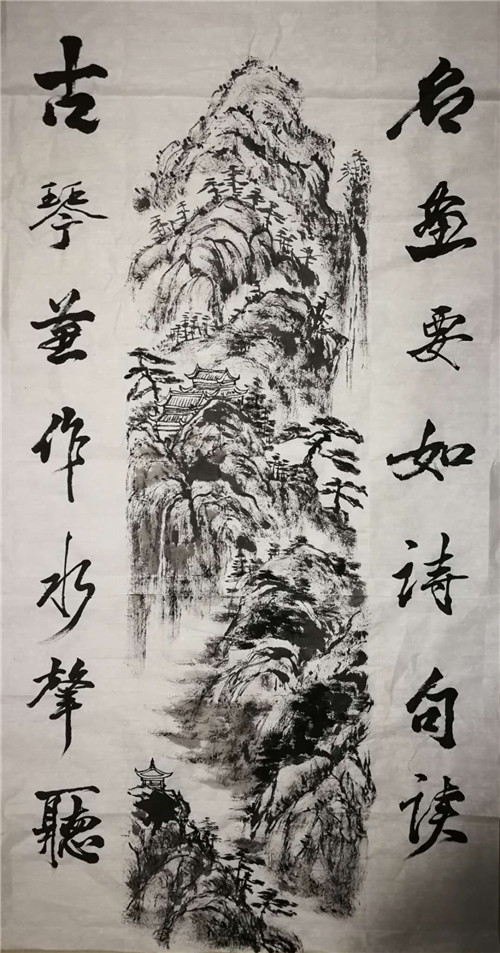 名画要如诗句读
古琴兼作水声聽